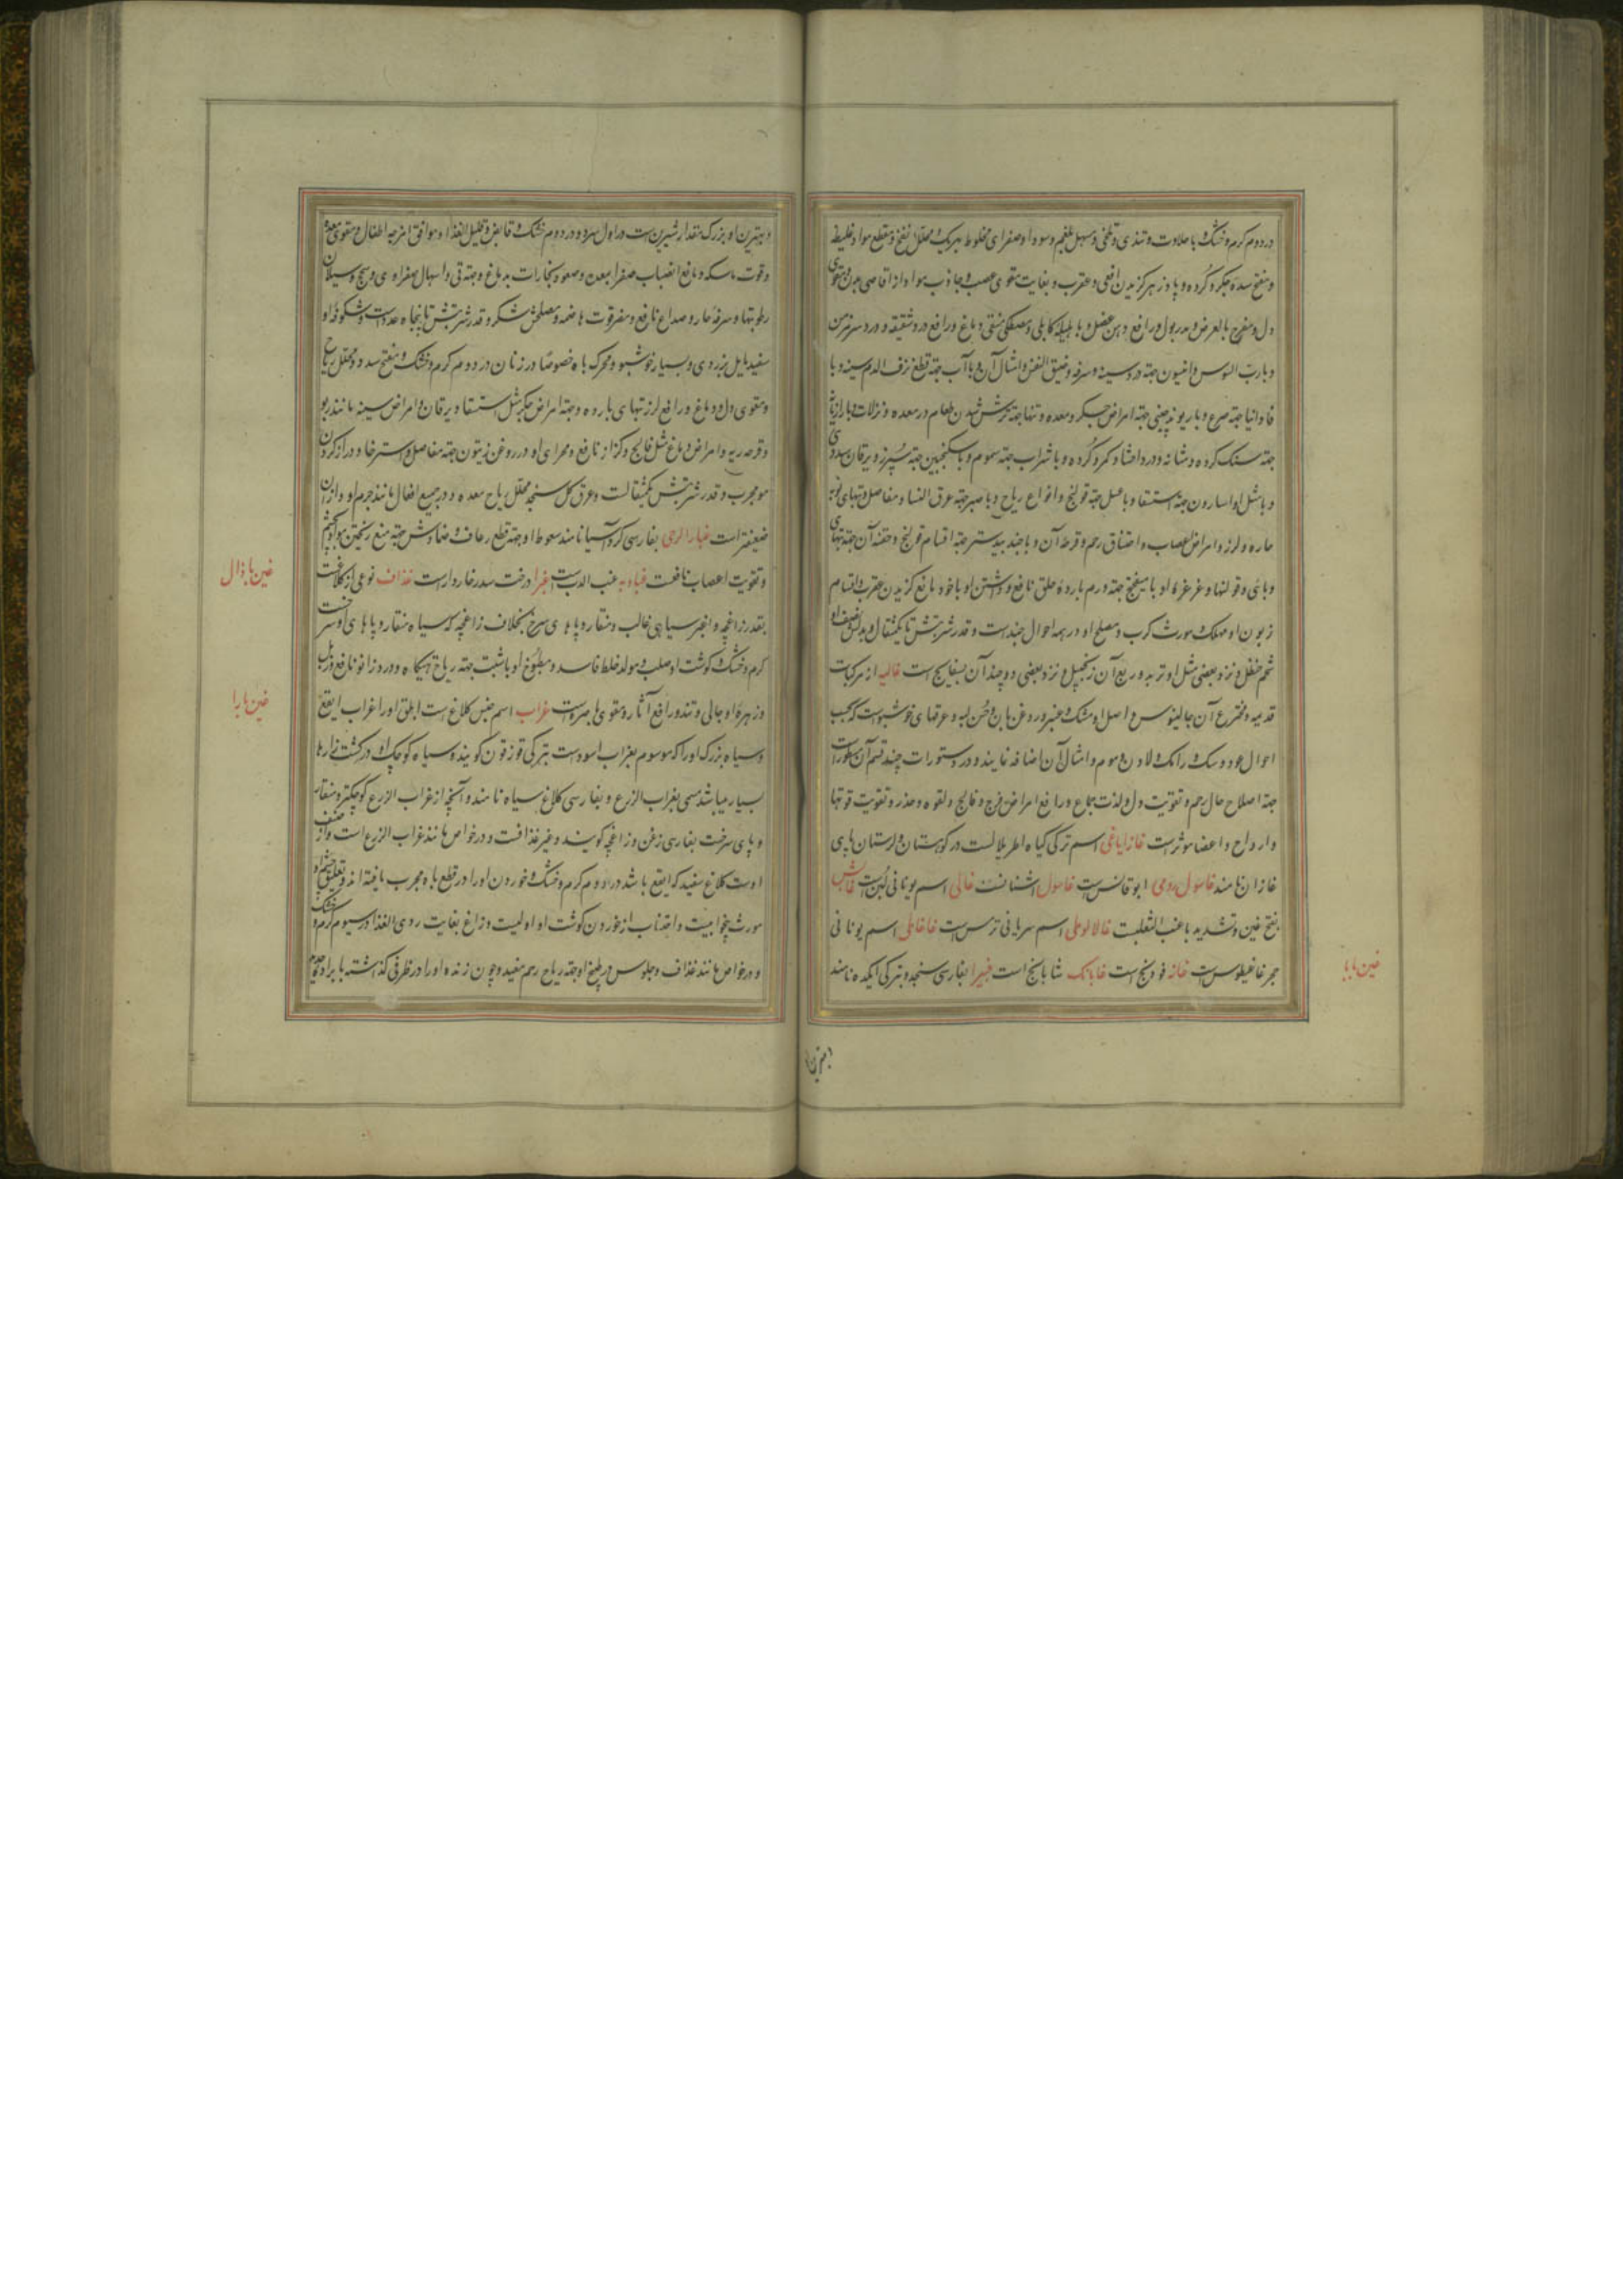 در دوم گرم و خشک و با حلاوت و تندی و تلخی و مسهل بلغم و سودا و صفرای مخلوط بهریک و محلل نفخ و مقطع مواد غلیظه
و مفتح سده جگر و گرده و پادزهر گزیدن افعی و عقرب و بغایت مقوی عصب و جاذب مواد از اقاصی بدن و مقوی
دل و مفرح بالعرض و مدر بول و رافع و با هلیله کابلی و مصطکی منقی دماغ و رافع درد شقیقه و درد سر مزمن
و با رب السوس و انیسون جهة درد سینه و سرفه و ضیق النفس و امثال آن و با آب جهة قطع نزف الدم سینه و با
فاوانیا جهة صرع و با ریوند چینی جهة امراض جگر و معده و تنها جهة ترش شدن طعام در معده و نزلات و با رازیانه
جهة سنک گرده و مثانه و درد احشا و کمر و گرده و با شراب جهة سموم و با سکنجبین جهة سپرز و یرقان سددی
و با مثل او اسارون جهة استسقا و با عسل جهة قولنج و انواع ریاح و با صبر جهة عرق النسا و مفاصل و تبهای
حاره و لرز و امراض اعصاب و اختناق رحم و قرحه آن و با جند بیدستر جهة اقسام قولنج و حقنه آن جهة تبهای
وبائی و قولنها و غرغره او با میفختج جهة ورم بارده حلق نافع و داشتن او با خود مانع گزیدن عقرب و اقسام
زبون او مهلک و مورث کرب و مصلح او در همه احوال جند است و قدر شربتش تا یکمثقال و بدلش نصف او
شحم حنظل و نزد بعضی مثل او تربد و ربع آن زنجبیل و نزد بعضی دو چند آن بسفایج است غالیه از مرکبات
قدیمه و مخترع آن جالینوس و اصل او مشک و عنبر و روغن بان و حسن لبه و عرقهای خوشبوست که بحسب
احوال عود و سک و رامک و لادن و موم و امثال آن اضافه نمایند و در دستورات چند قسم آن مسطور است
جهة اصلاح حال رحم و تقویت دل و لذت جماع و رافع امراض فرج و فالج و لقوه و خدر و تقویت قوتها
و ارواح و اعضا موثر است غازایاغی اسم ترکی گیاه اطریلالست در کوهستان و لرستان پای
غازان نامند غاسول رومی ابوقانس است غاسول اشنانست غالی اسم یونانی لبن است غاش
بفتح غین و تشدید با عنب الثعلبست غالالوطی اسم سریانی ترمس است غاغاطی اسم یونانی
حجر غاغیطوس است غاغه فودنج است غابانک شابانج است غبیرا بفارسی سنجد و بترکی ایکده نامند
غین با با
بهترین او
و بهترین او بزرک مقدار شیرین ست در اول سرد و در دوم خشک و قابض و قلیل الغذا و موافق امزجه اطفال و مقوی معده
و قوت ماسکه و مانع انصباب صفرا بمعده و صعود بخارات بدماغ و جهة قی و اسهال صفراوی و سحج و سیلان
رطوبتها و سرفه حار و صداع نافع و مضر قوت هاضمه و مصلحش شکر و قدر شربتش تا پنجاه عدد است و شکوفه او
سفید مایل بزردی و بسیار خوشبو و محرک باه خصوصا در زنان در دوم گرم و خشک و مفتح سدد و محلل ریاح
و مقوی دل و دماغ و رافع لرز تبهای بارده و جهة امراض جگر مثل استسقا و یرقان و امراض سینه مانند ربو
و قرحه ریه و امراض دماغ مثل فالج و کزاز نافع و مجرای او در روغن زیتون جهة مفاصل و استرخا و دراز کردن
مو مجرب و قدر شربتش یکمثقالست و عرق گل سنجد محلل ریاح معده و در جمیع افعال مانند جرم او و از آن
ضعیفتر است غبار الرحی بفارسی گرد آسیا نامند سعوط او جهة قطع رعاف و ضمادش جهة منع ریختن مواد بچشم
و تقویت اعصاب نافعست عنب الدب است غبرا درخت سدر خاردار است غداف نوعی از کلاغست
بقدر زاغچه و انجر سیاهی غالب و منقار و پاهای سرخ بخلاف زاغچه که سیاه منقار و پاهای او سرخست
گرم و خشک و گوشت او صلب و مولد خلط فاسد و مطبوخ او با شبت جهة ریاح تهیگاه و درد زانو نافع و زبل
و زهره او جالی و تند و رافع آثار و مقوی باصره است غراب اسم جنس کلاغ است ابلق او را غراب ابقع
و سیاه بزرک او را که موسوم بغراب اسود ست بترکی قوزقون گویند و سیاه کوچک او در کشت زارها
بسیار میباشد مسمی بغراب الزرع و بفارسی کلاغ سیاه نامند و آنچه از غراب الزرع کوچکتر و منقار
و پای سرخست بفارسی زغن و زاغچه گویند و غیر غدافست و در خواص مانند غراب الزرع است و از صنف
اوست کلاغ سفید که ابقع باشد در دوم گرم و خشک و خوردن او را در قطع باه مجرب یافته اند و تعلیق چشم او
مورث بیخوابیست و اجتناب از خوردن گوشت او اولیست و زاغ بغایت ردی الغذا در سیوم گرم و خشک
و در خواص مانند غداف و جلوس در طبیخ او جهة ریاح رحم مفید و چون زنده او را در ظرفی گذاشته با براده
غین با ذال
غین با را